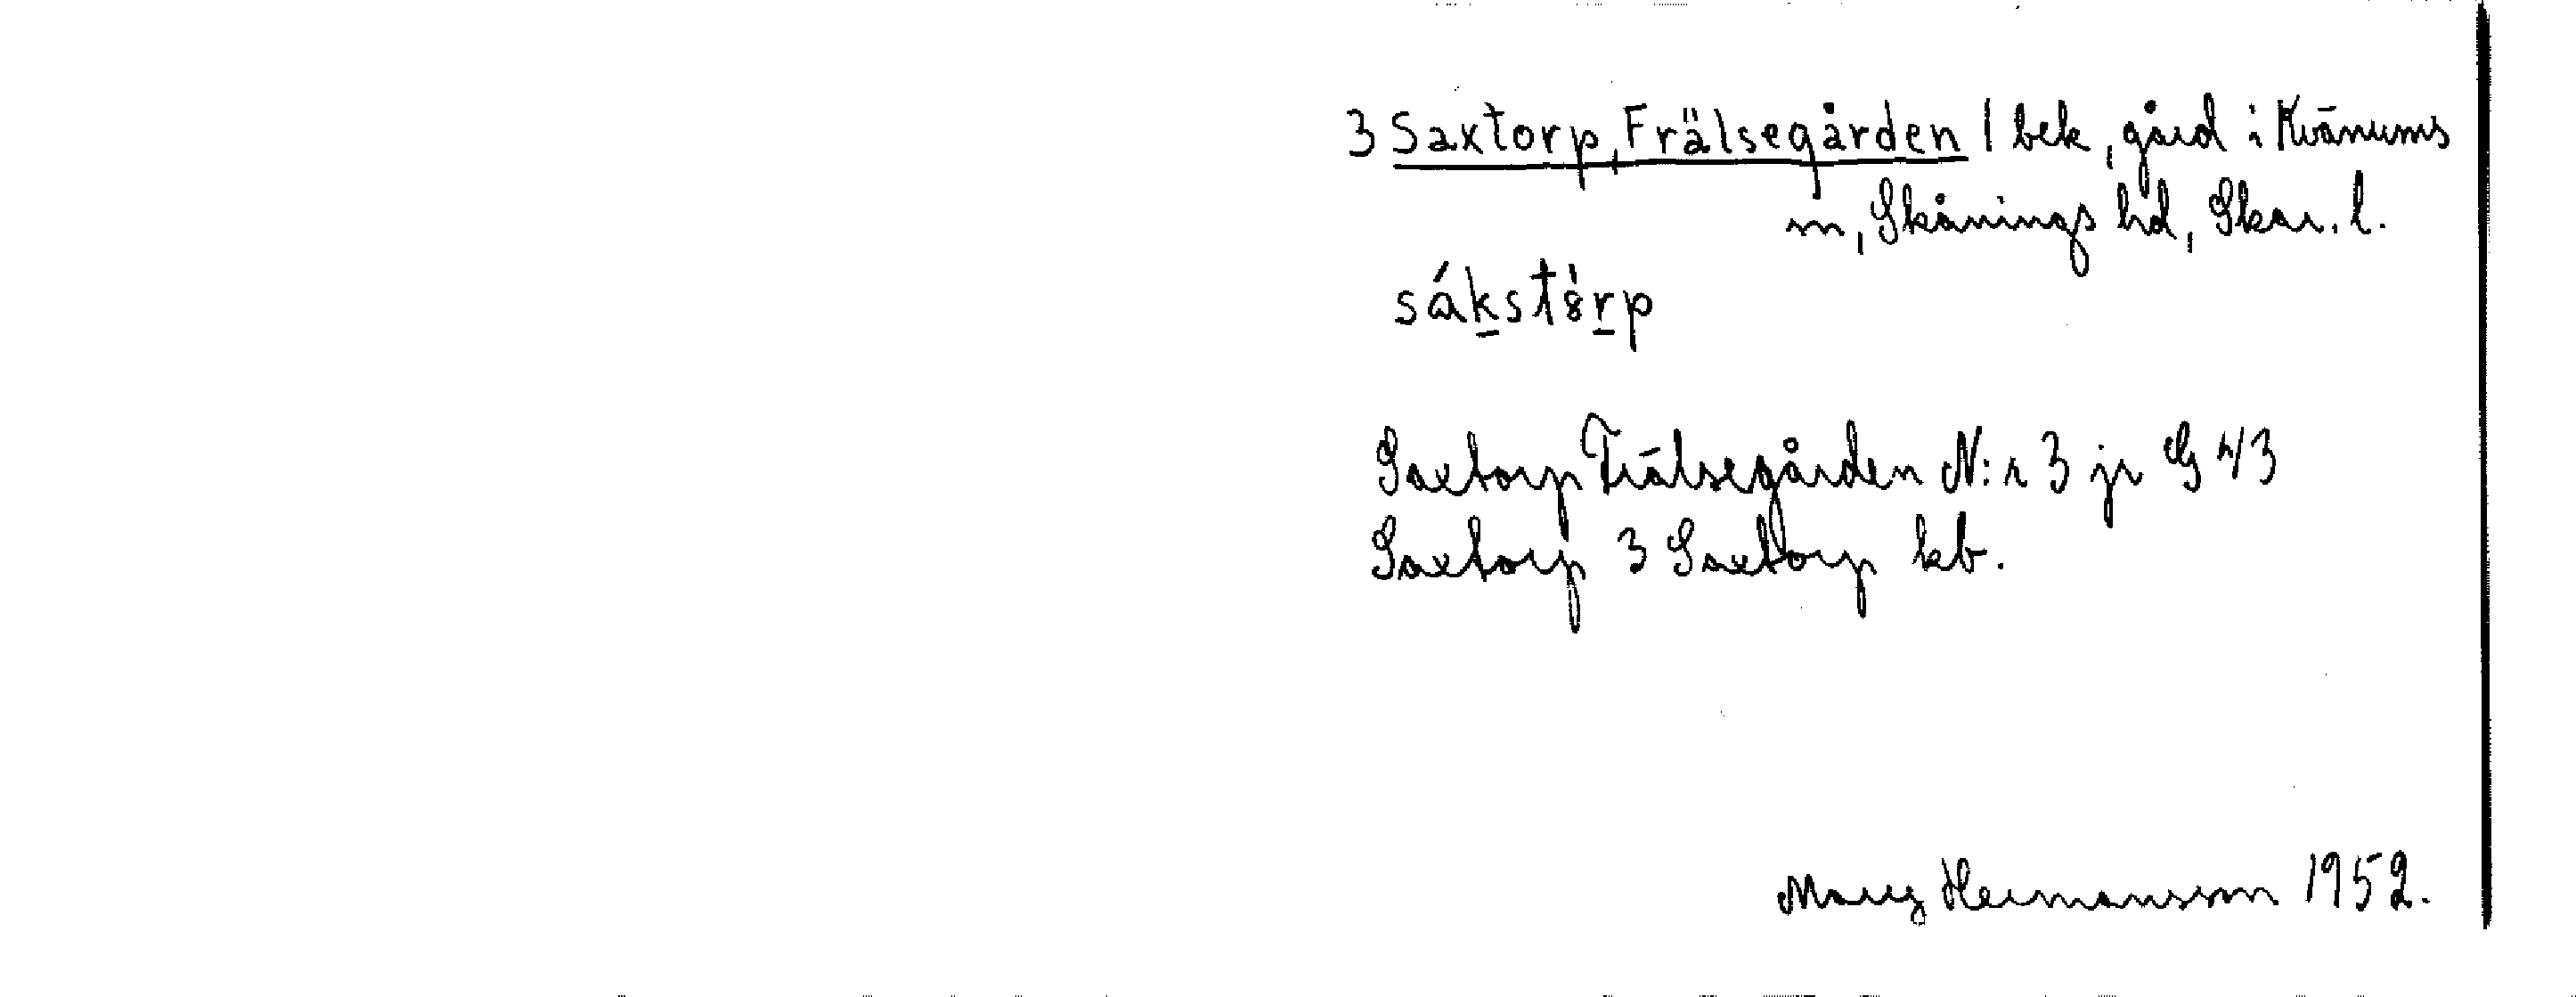 3 Saxtorp, Frälsegården / bek, gård i Kvänums
sn, Skånings hd, Skar. l.
sákstȣ̀rp
Saxtorp Frälsegården N:r 3 jr G 43
Saxtorp 3 Saxtorp kb.
Mary Hermansson 1952.